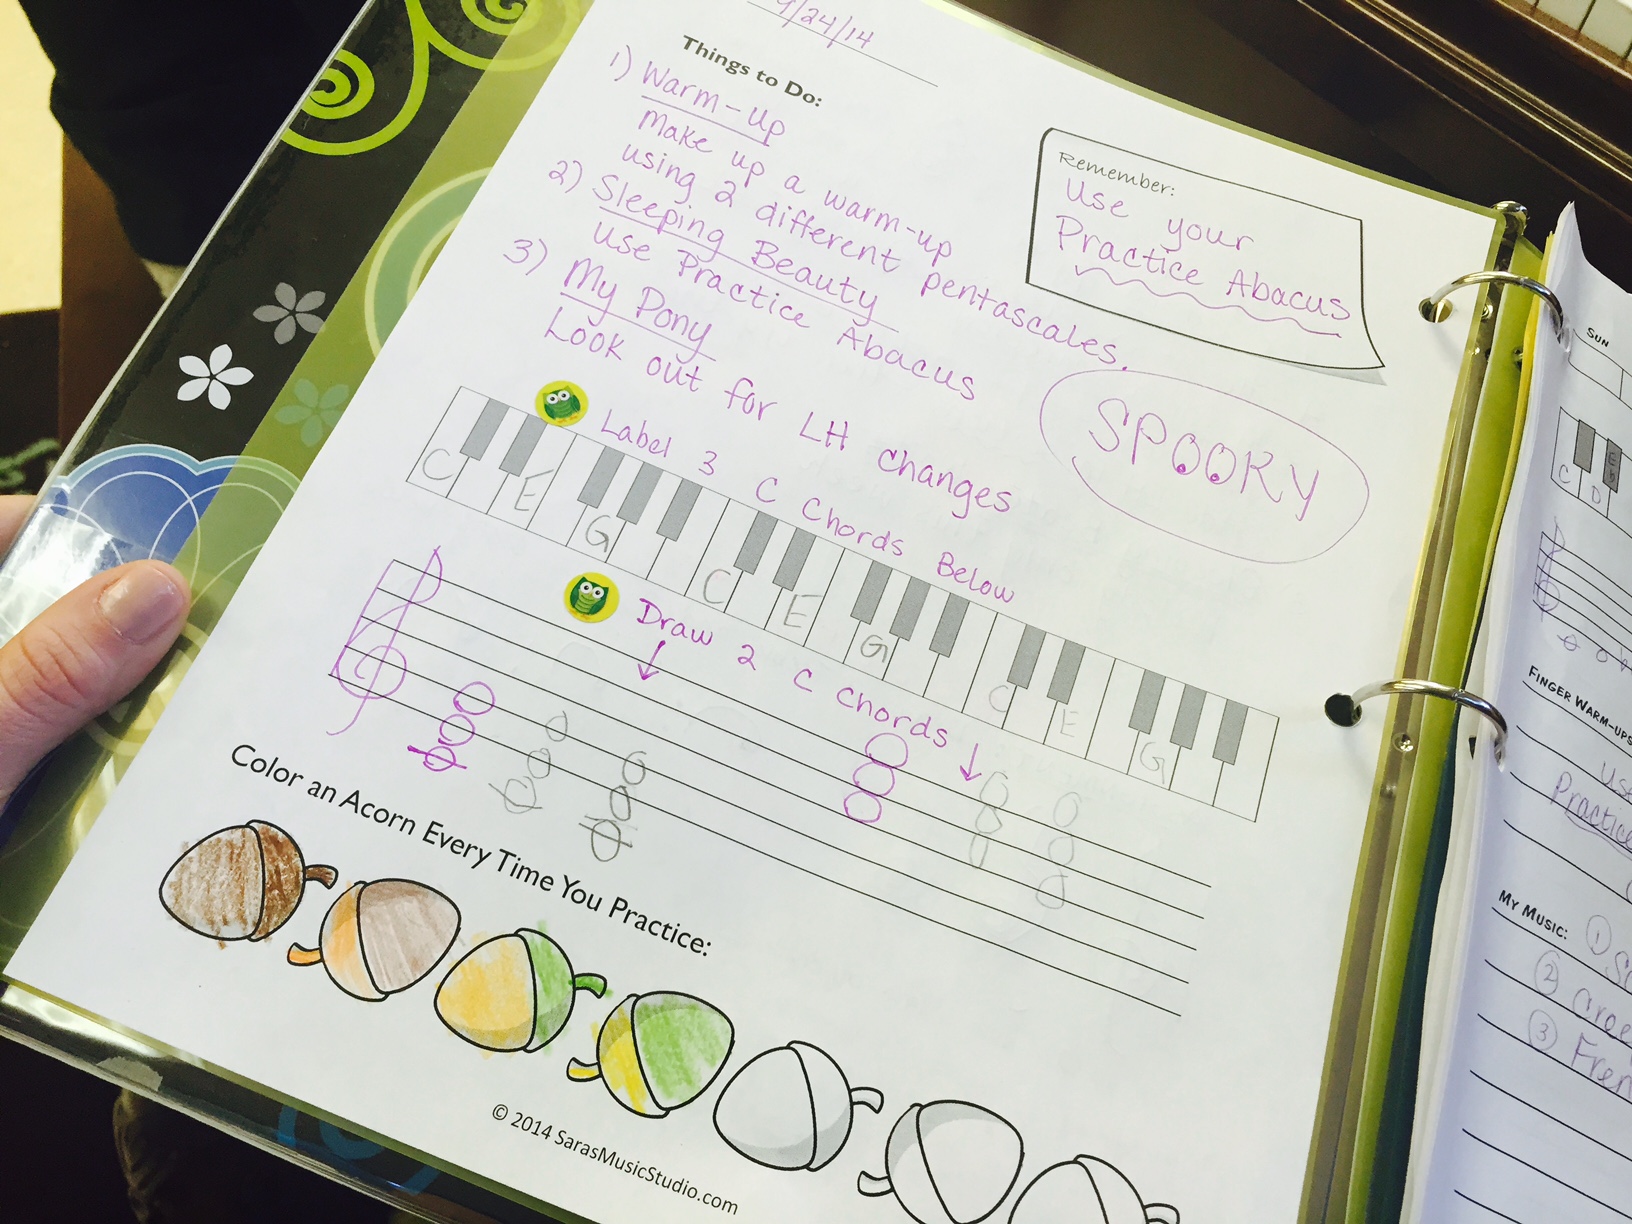 9/24/14
Things to Do:
1) Warm-Up
Make up a warm-up
using 2 different pentascales.
2) Sleeping Beauty
use Practice Abacus
3) My Pony
Look out for LH changes
Remember:
Use your
Practice Abacus
SPOOKY
Label 3 C Chords Below
C E G C E G C E G
Draw 2 C Chords
Color an Acorn Every Time You Practice:
© 2014 SarasMusicStudio.com
SUN
C D
FINGER WARM-UPS
Practice
MY MUSIC: 1
2
3